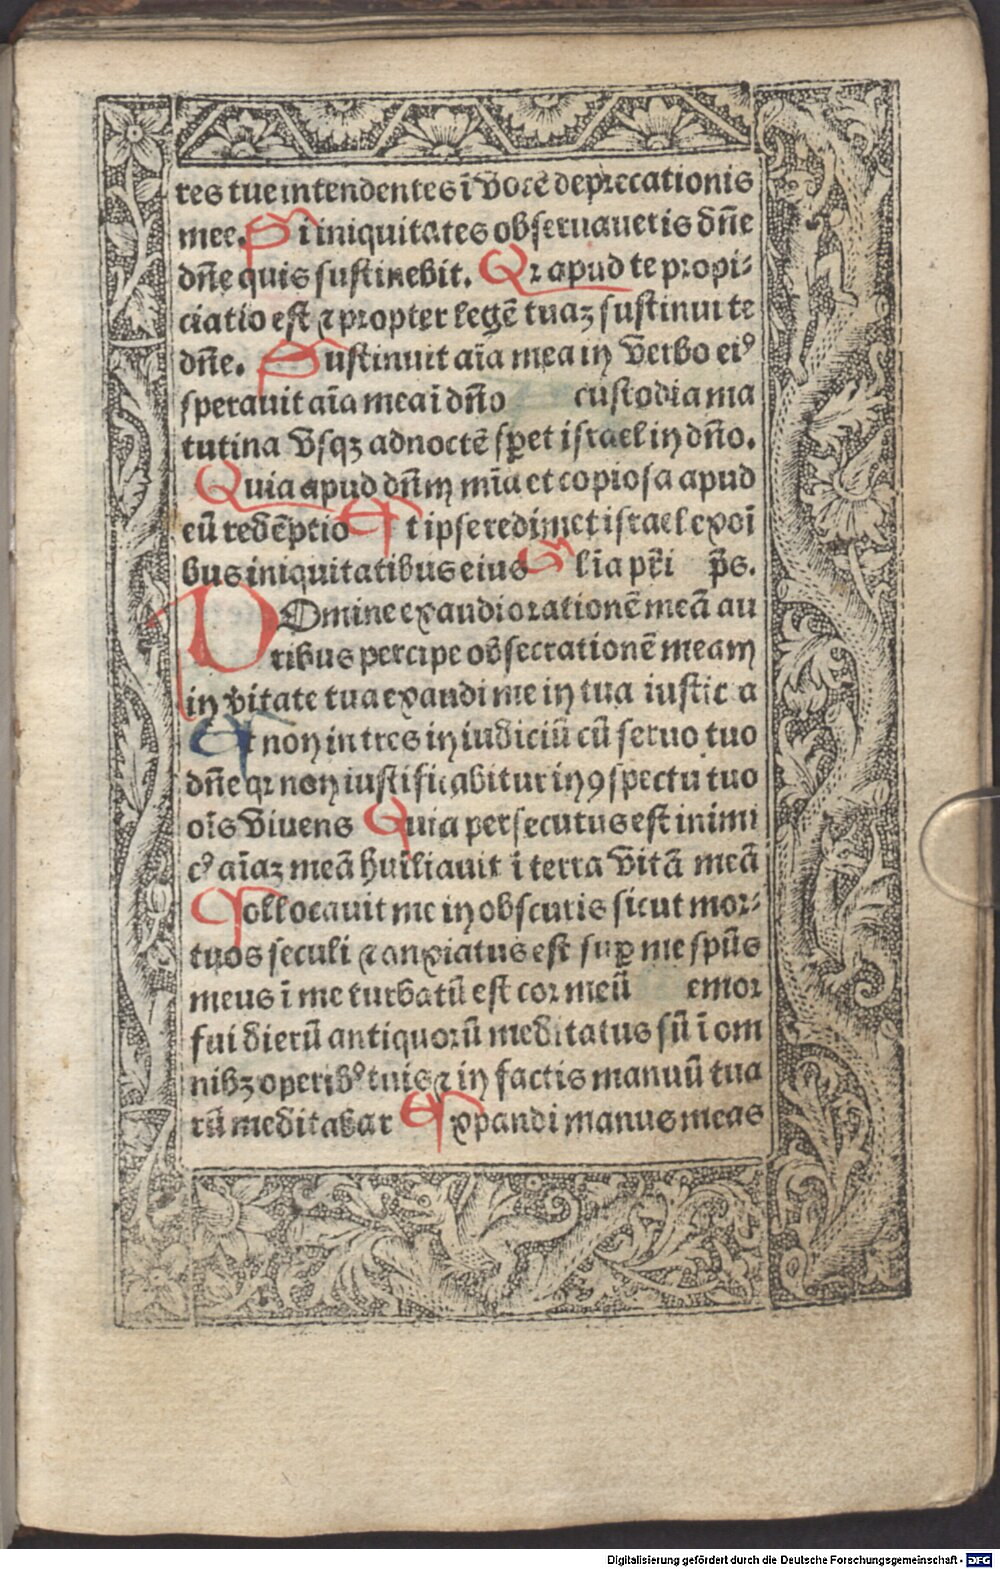 res tue intendentes ī voce deprecationis
mee. Si iniquitates obseruaueris dñe
dñe quis sustinebit. Qꝛ apud te propi⸗
ciatio est ⁊ propter legē tuaꝫ sustinui te
dñe. Sustinuit aīa mea in verbo eiꝰ
sperauit aīa mea ī dño custodia ma
tutina vsqꝫ ad noctē sꝑet israel in dño.
Quia apud dñm mīa et copiosa apud
eū redēptio Et ipse redimet israel ex oī
bus iniquitatibus eius Glīa pr̄i p̄s.
DOmine exaudi orationē meā au
ribus percipe obsecrationē meam
in v̄itate tua exaudi me in tua iustic a
Et non intres in iudiciū cū seruo tuo
dñe qꝛ non iustificabitur in ꝯspectu tuo
oīs viuens Quia persecutus est inimi
cꝰ aīaꝫ meā hūiliauit ī terra vitā meā
Collocauit me in obscuris sicut mor⸗
tuos seculi ⁊ anxiatus est suꝑ me spūs
meus ī me turbatū est cor meū emor
fui dierū antiquorū meditatus sū ī om
nibꝫ operibꝰ tuis ⁊ in factis manuū tua
rū meditabar Expandi manus meas
Digitalisierung gefördert durch die Deutsche Forschungsgemeinschaft - DFG